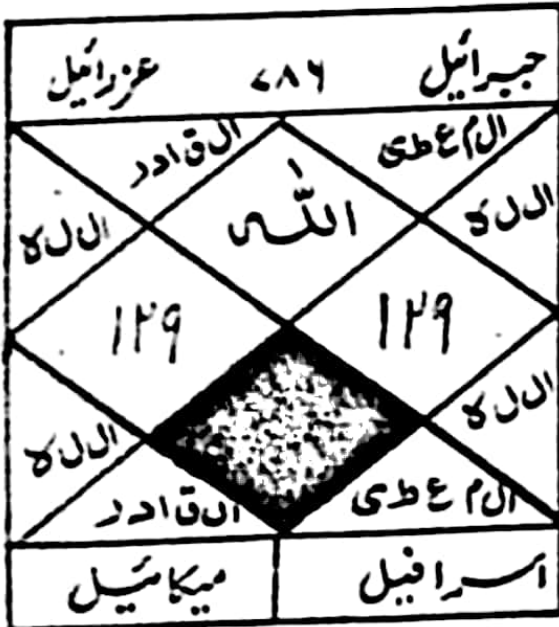 جبرائیل ۷۸۶ عزرائیل
ال م ع ط ی ال ق ا د ر
ال ل ہ اللہ ال ل ہ
۱۲۹ ۱۲۹
ال ل ہ ال ل ہ
ال م ع ط ی ال ق ا د ر
اسرافیل میکائیل